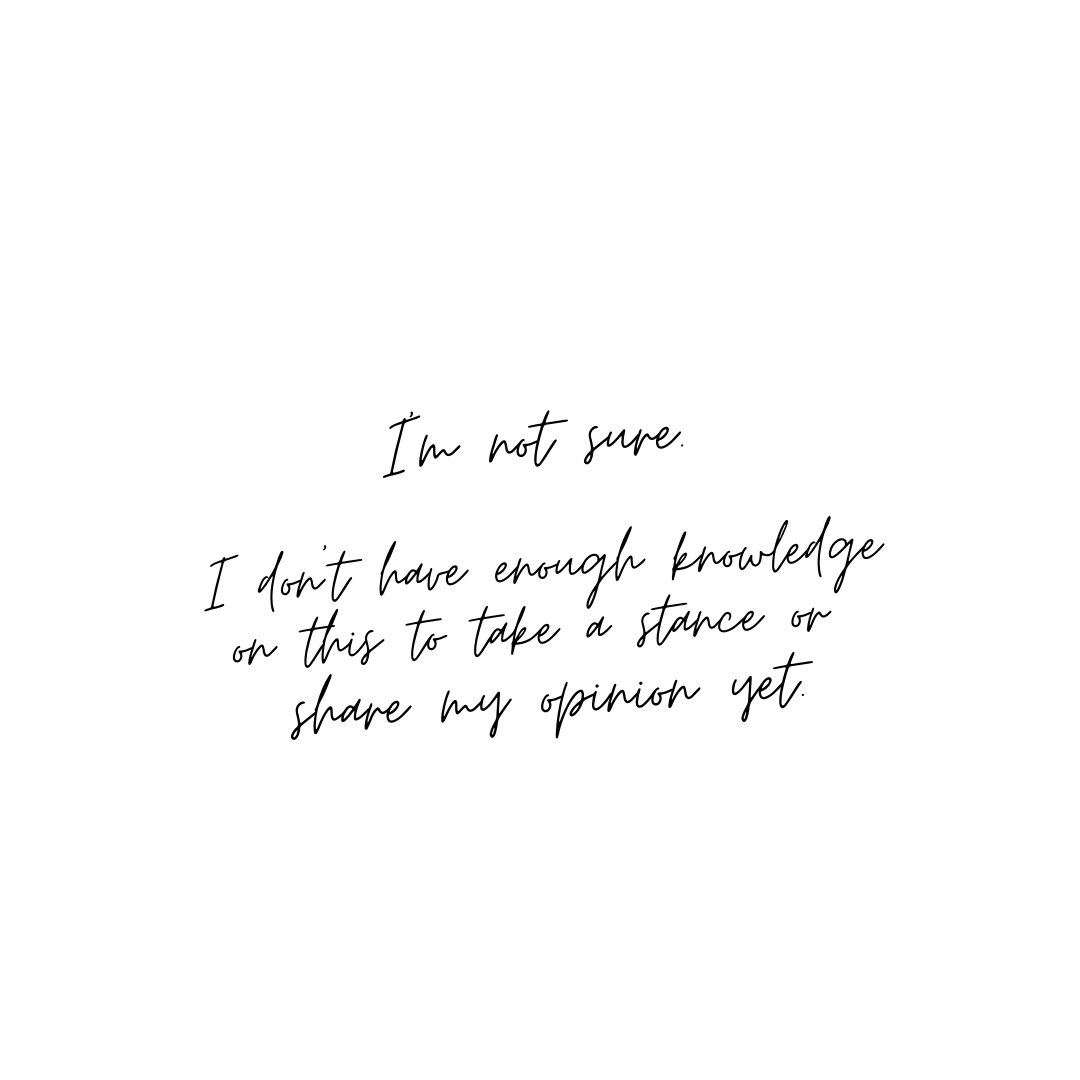 I'm not sure.
I don't have enough knowledge
on this to take a stance or
share my opinion yet.